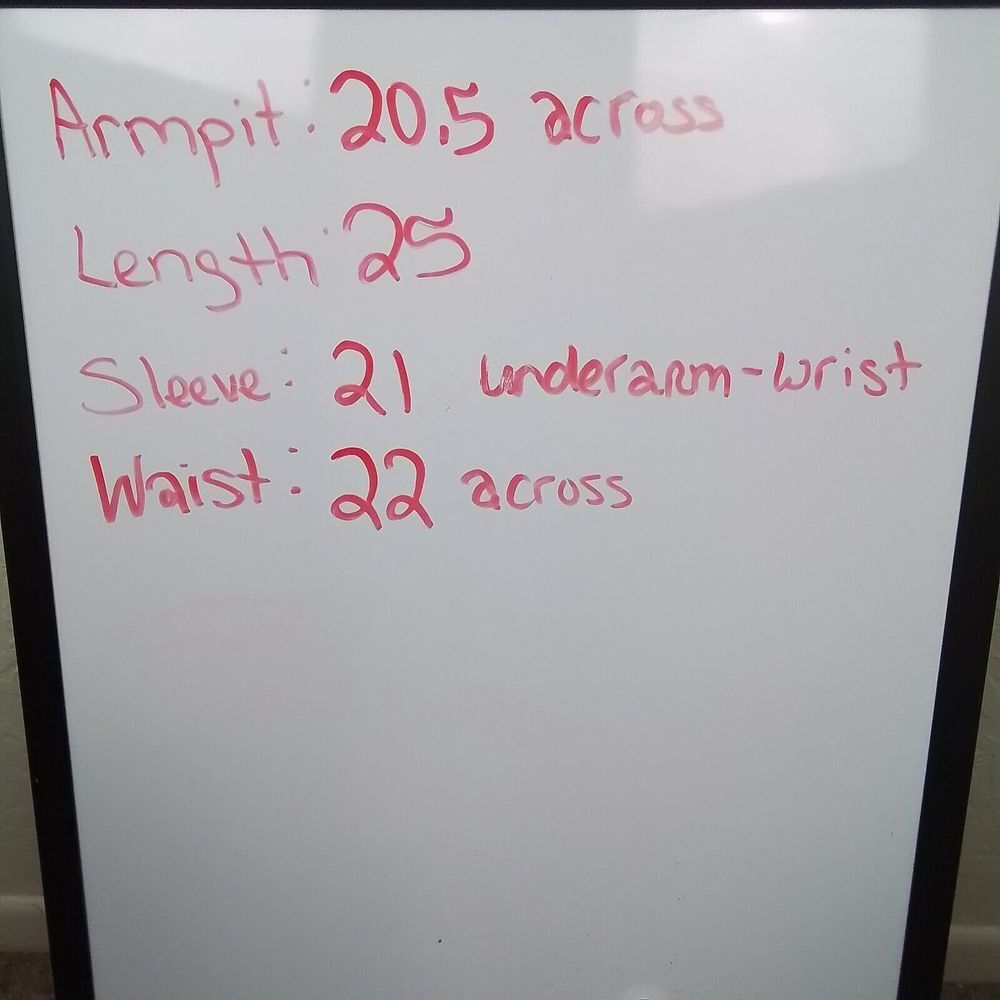 Armpit: 20.5 across
Length: 25
Sleeve: 21 underarm-wrist
Waist: 22 across